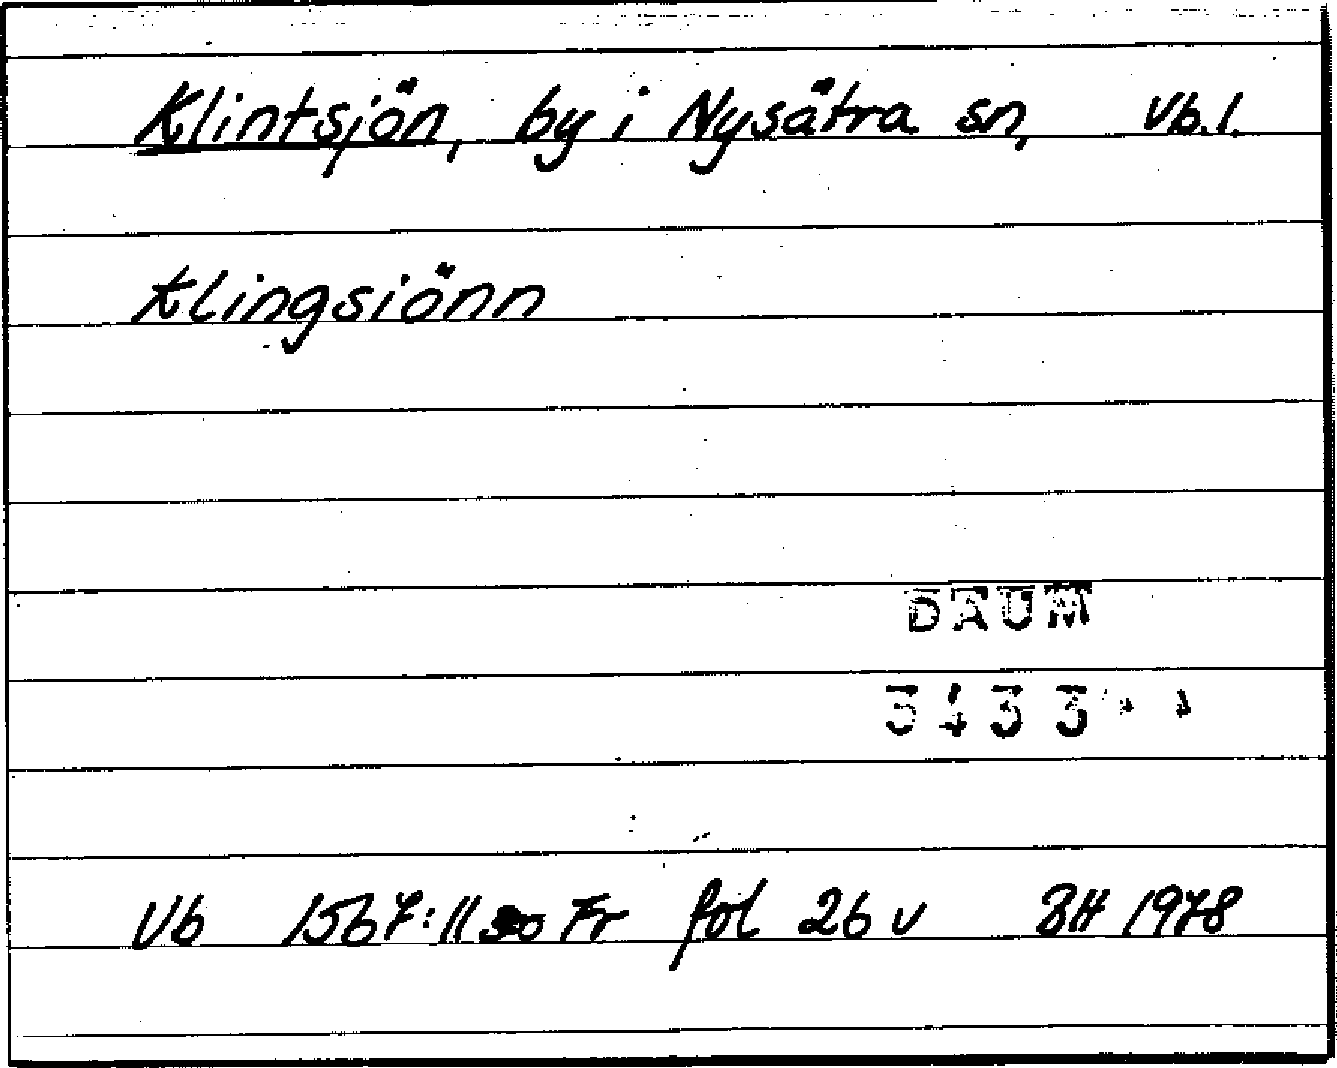 Klintsjön, by i Nysätra sn, Vb.l.
Klingsiönn
DAUM
3433
Vb 1567:11 Fr fol 26 v BH 1978